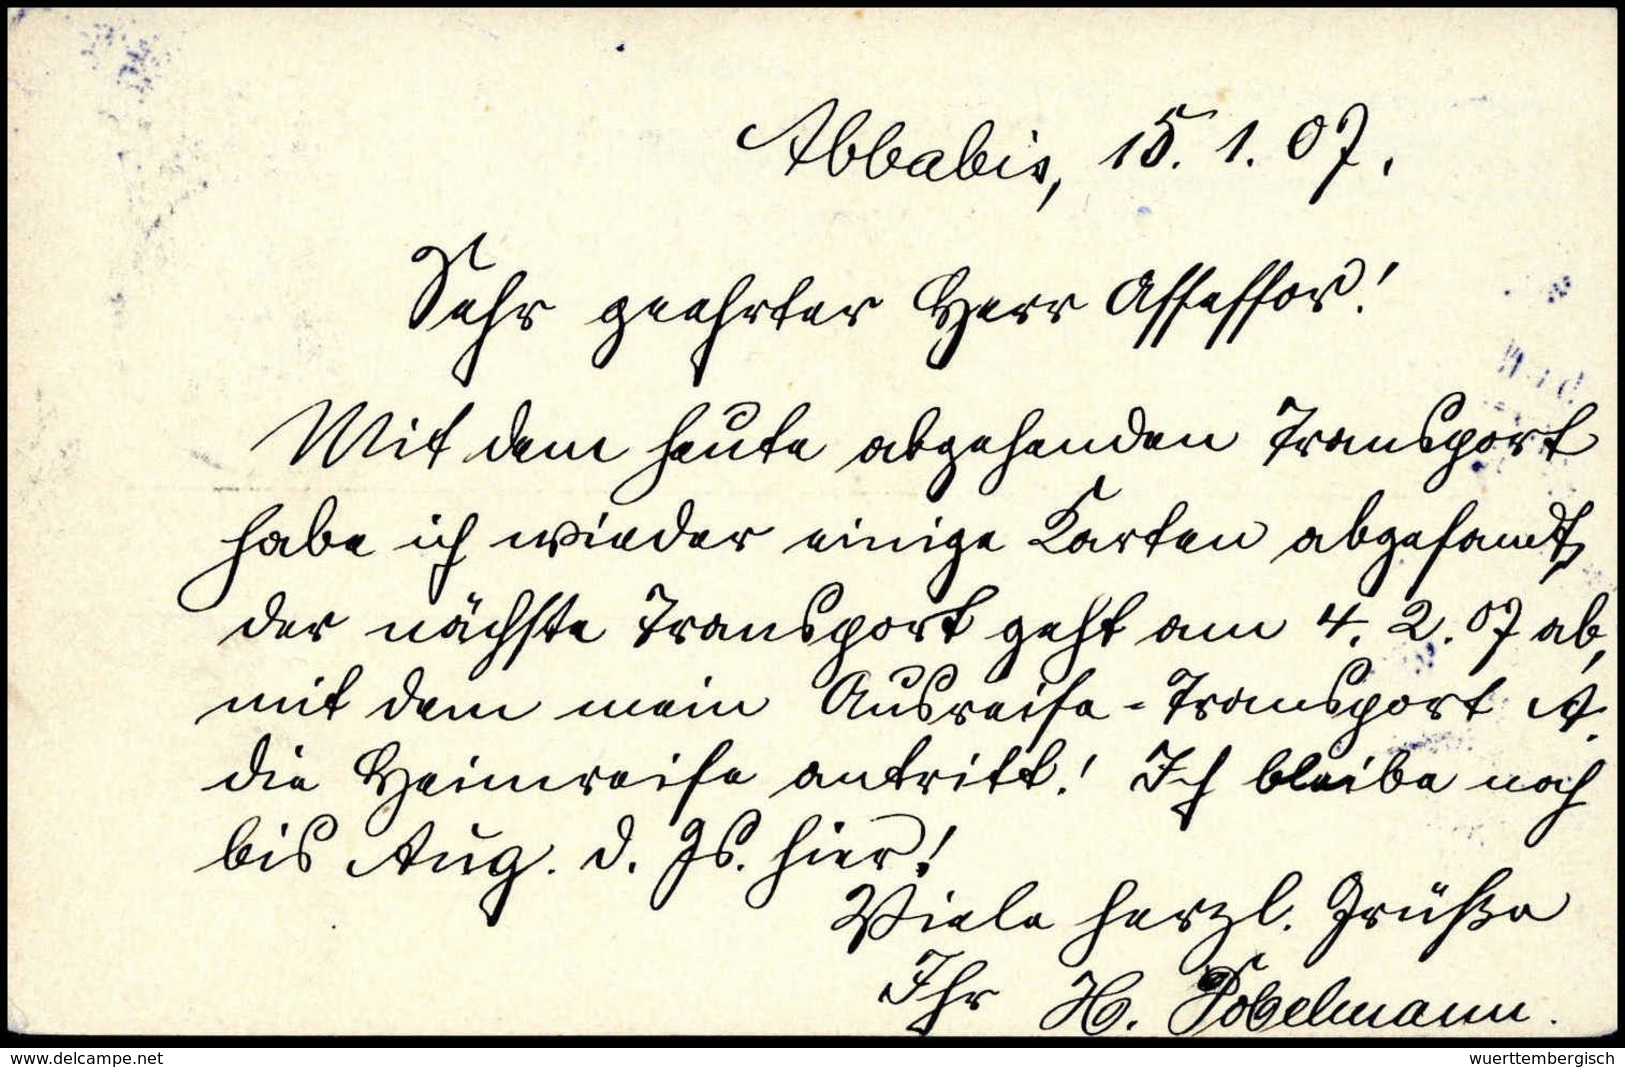 Abbabis, 15. 1. 07.
Sehr geehrter Herr Assessor!
Mit dem heute abgehenden Transport
habe ich wieder einige Karten abgesandt,
der nächste Transport geht am 4. 2. 07 ab,
mit dem mein Ausreise-Transport
die Heimreise antritt! Ich bleibe noch
bis Aug. d. Js. hier!
Viele herzl. Grüße
Ihr H. Pobelmann.
www.delcampe.net
wuerttembergisch